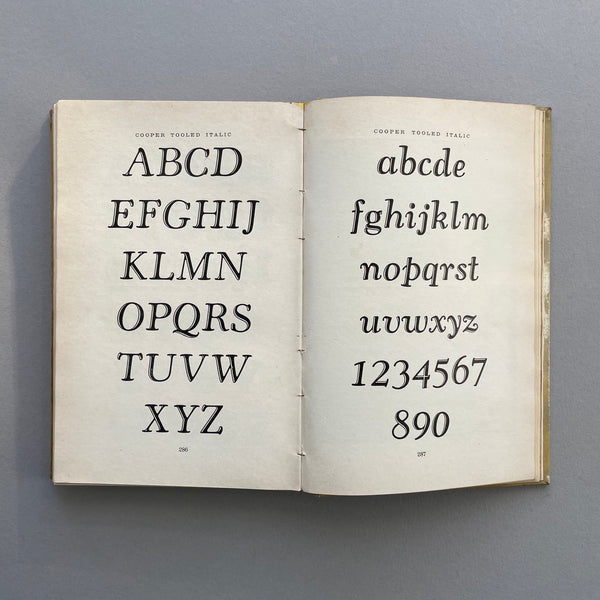 COOPER TOOLED ITALIC
ABCD
EFGHIJ
KLMN
OPQRS
TUVW
XYZ
286
COOPER TOOLED ITALIC
abcde
fghijklm
nopqrst
uvwxyz
1234567
890
287